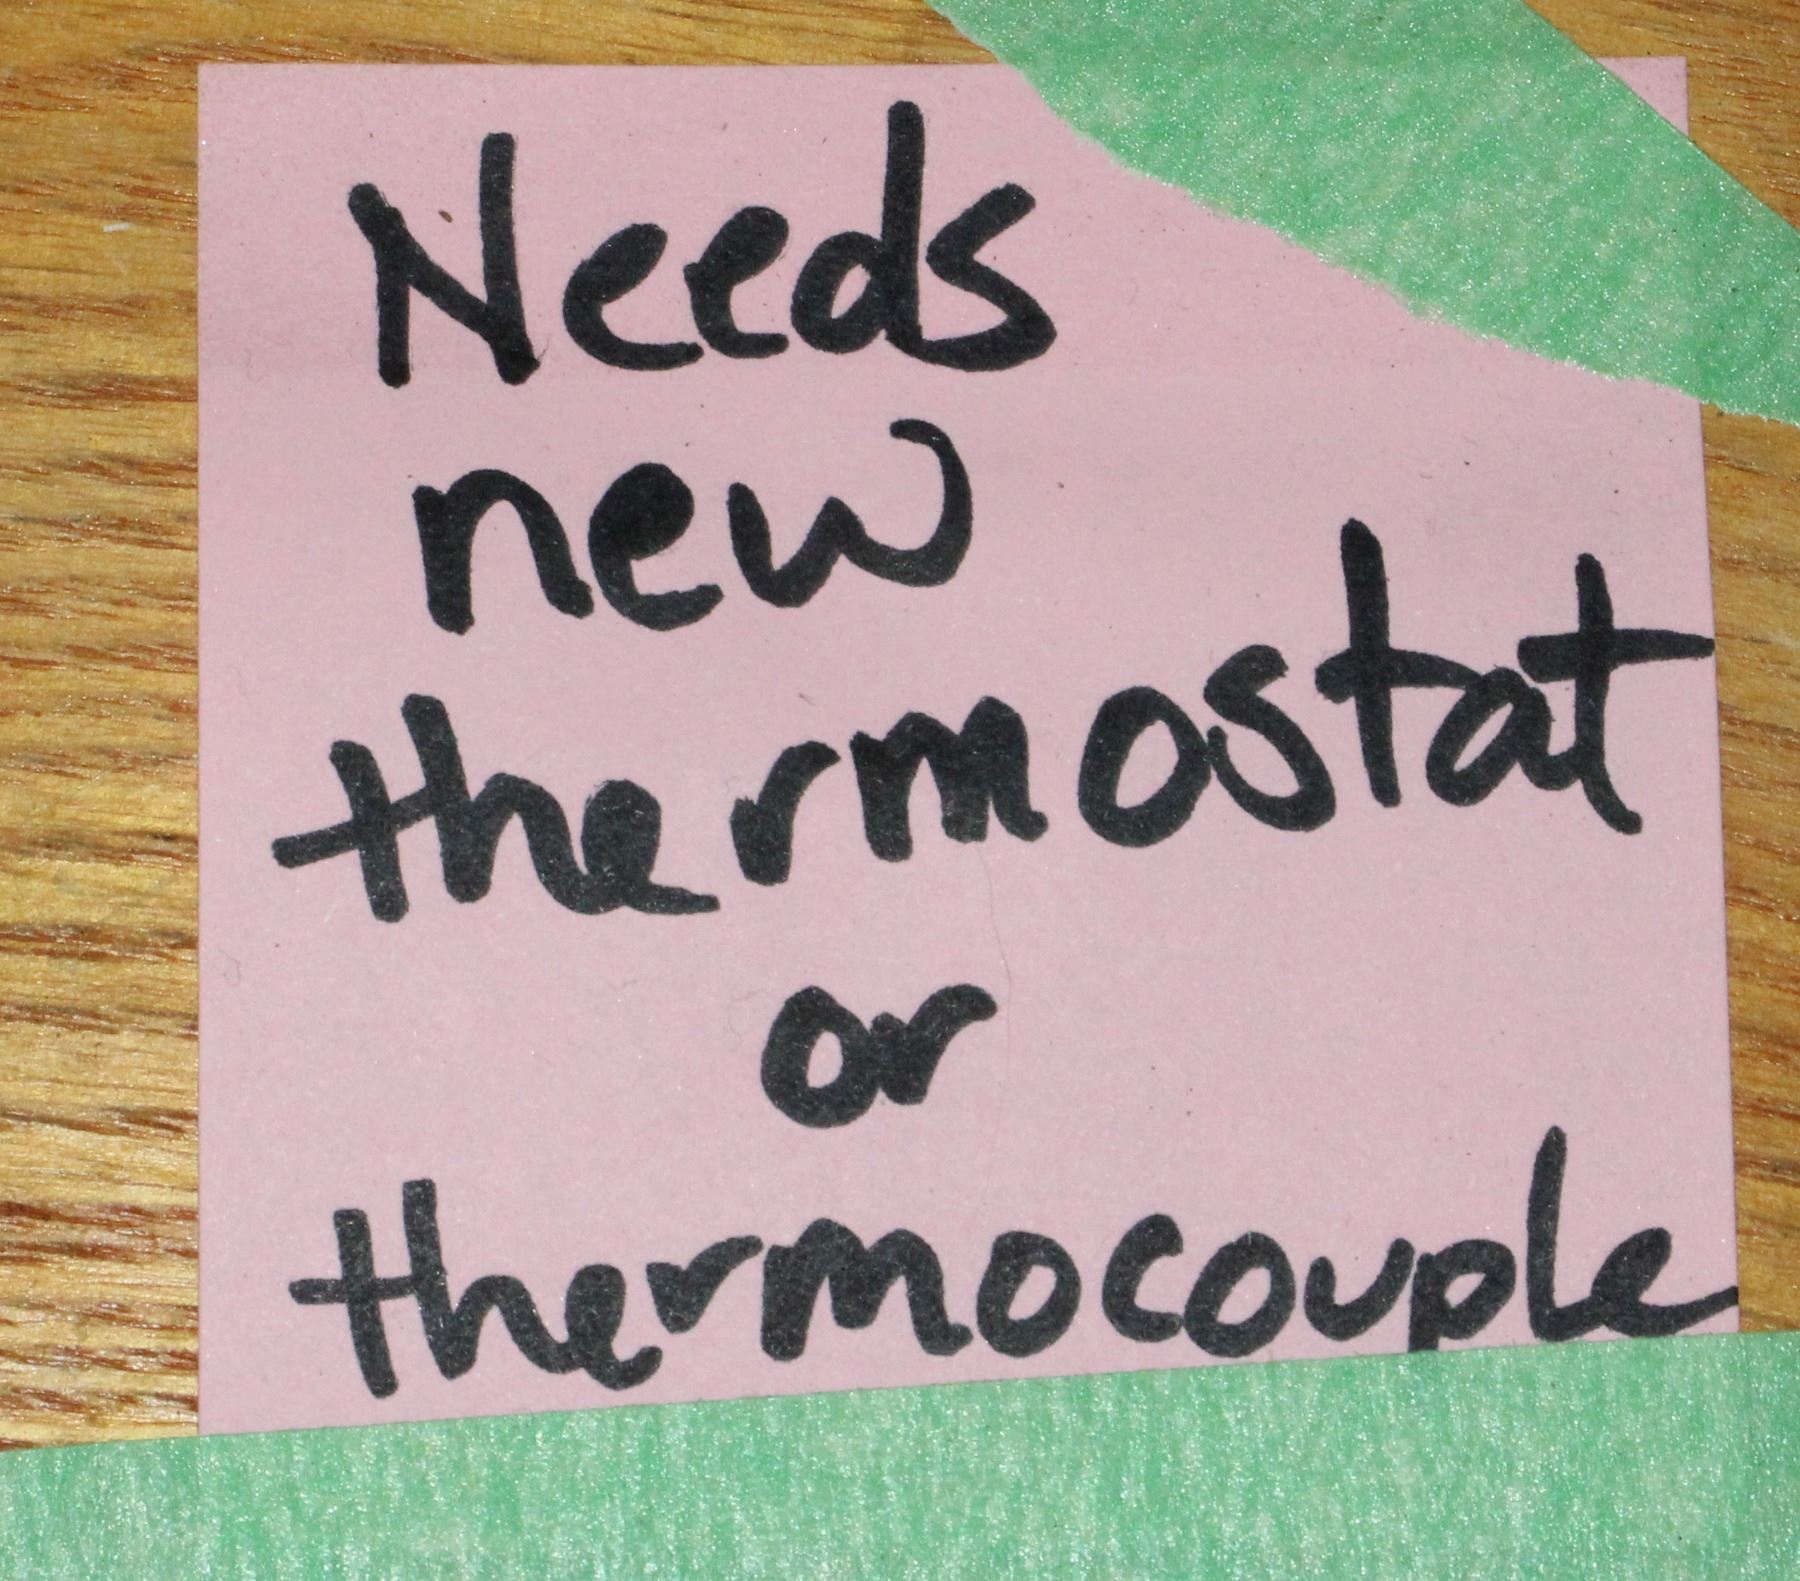 Needs
new
thermostat
or
thermocouple